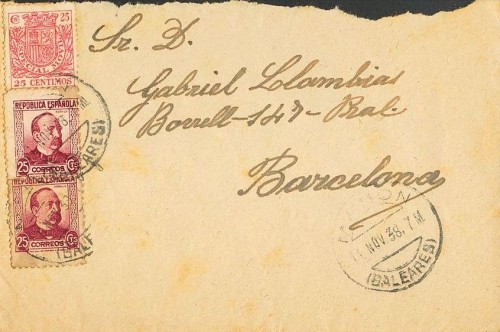 25 25
ESPECIAL MOVIL
25 CENTIMOS
REPÚBLICA ESPAÑOLA
25 CORREOS CTS
REPÚBLICA ESPAÑOLA
25 CORREOS CTS
(BALEARES)
Sr. D.
Gabriel Llambias
Borrell-147-Pral
Barcelona
NOV. 38. 7 M
(BALEARES)